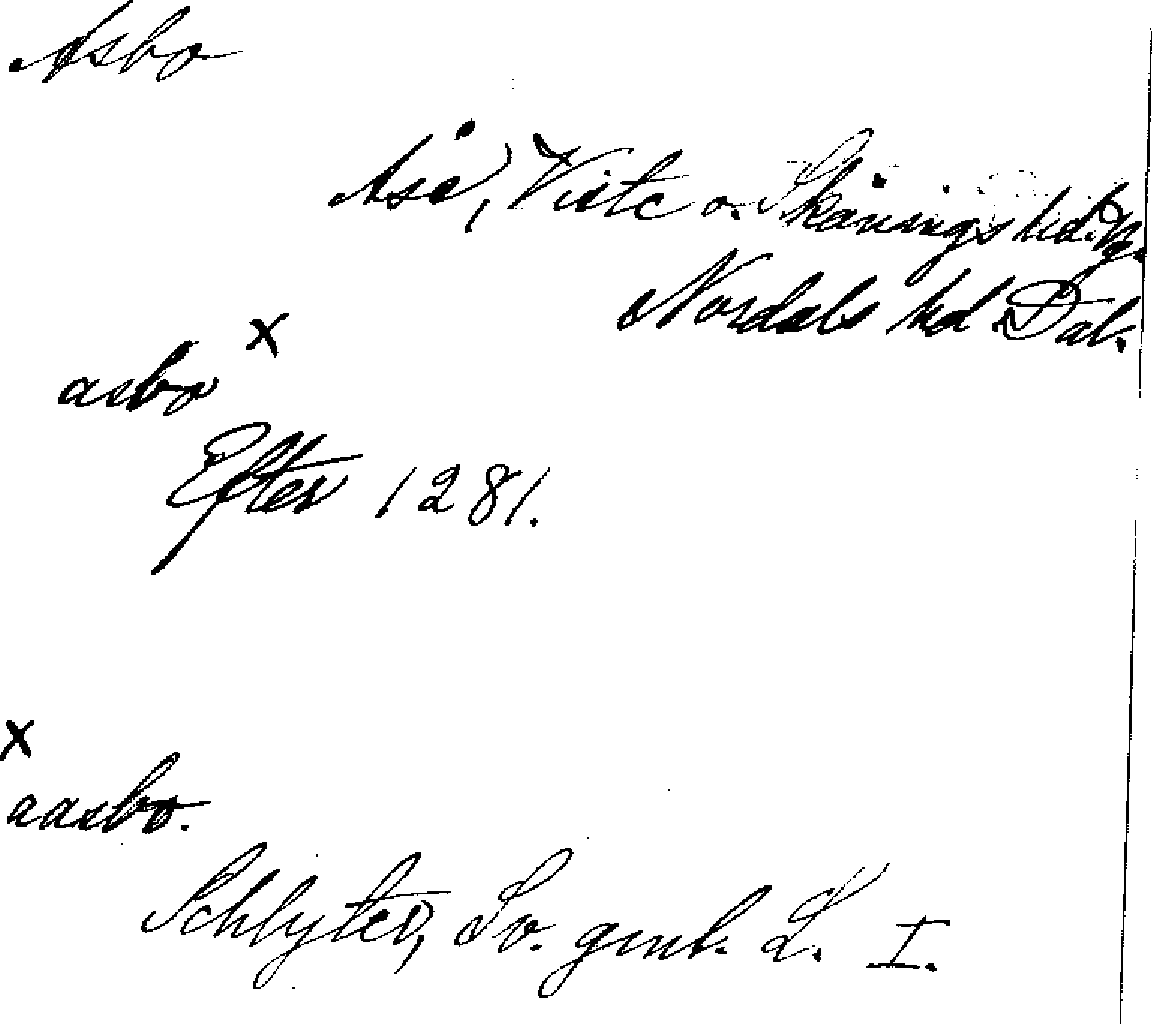 Asbo
Åse, Viste o. Skånings hd. Vg.
Nordals hd Dal.
asbo x
Efter 1281.
x
aasbo.
Schlyter, Sv. gml. L. I.